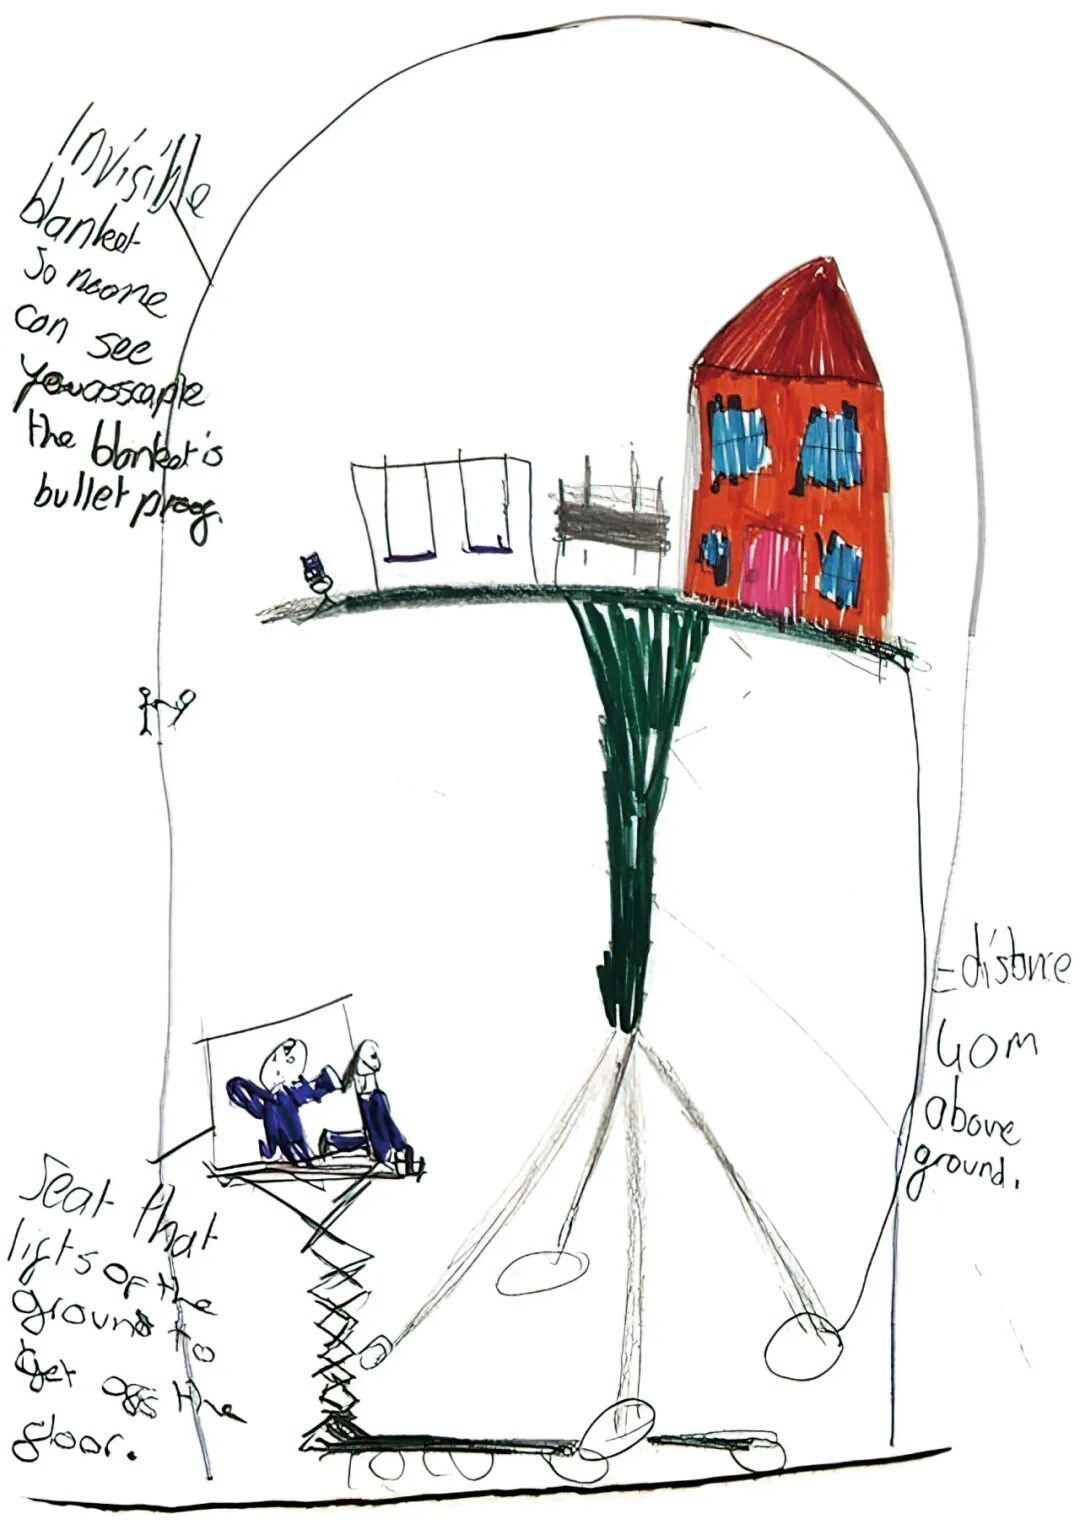 Invisible
blanket
So noone
can see
you
the blanket is
bullet proof.
- distance
40m
above
ground.
Seat that
lifts of the
ground to
get off the
floor.